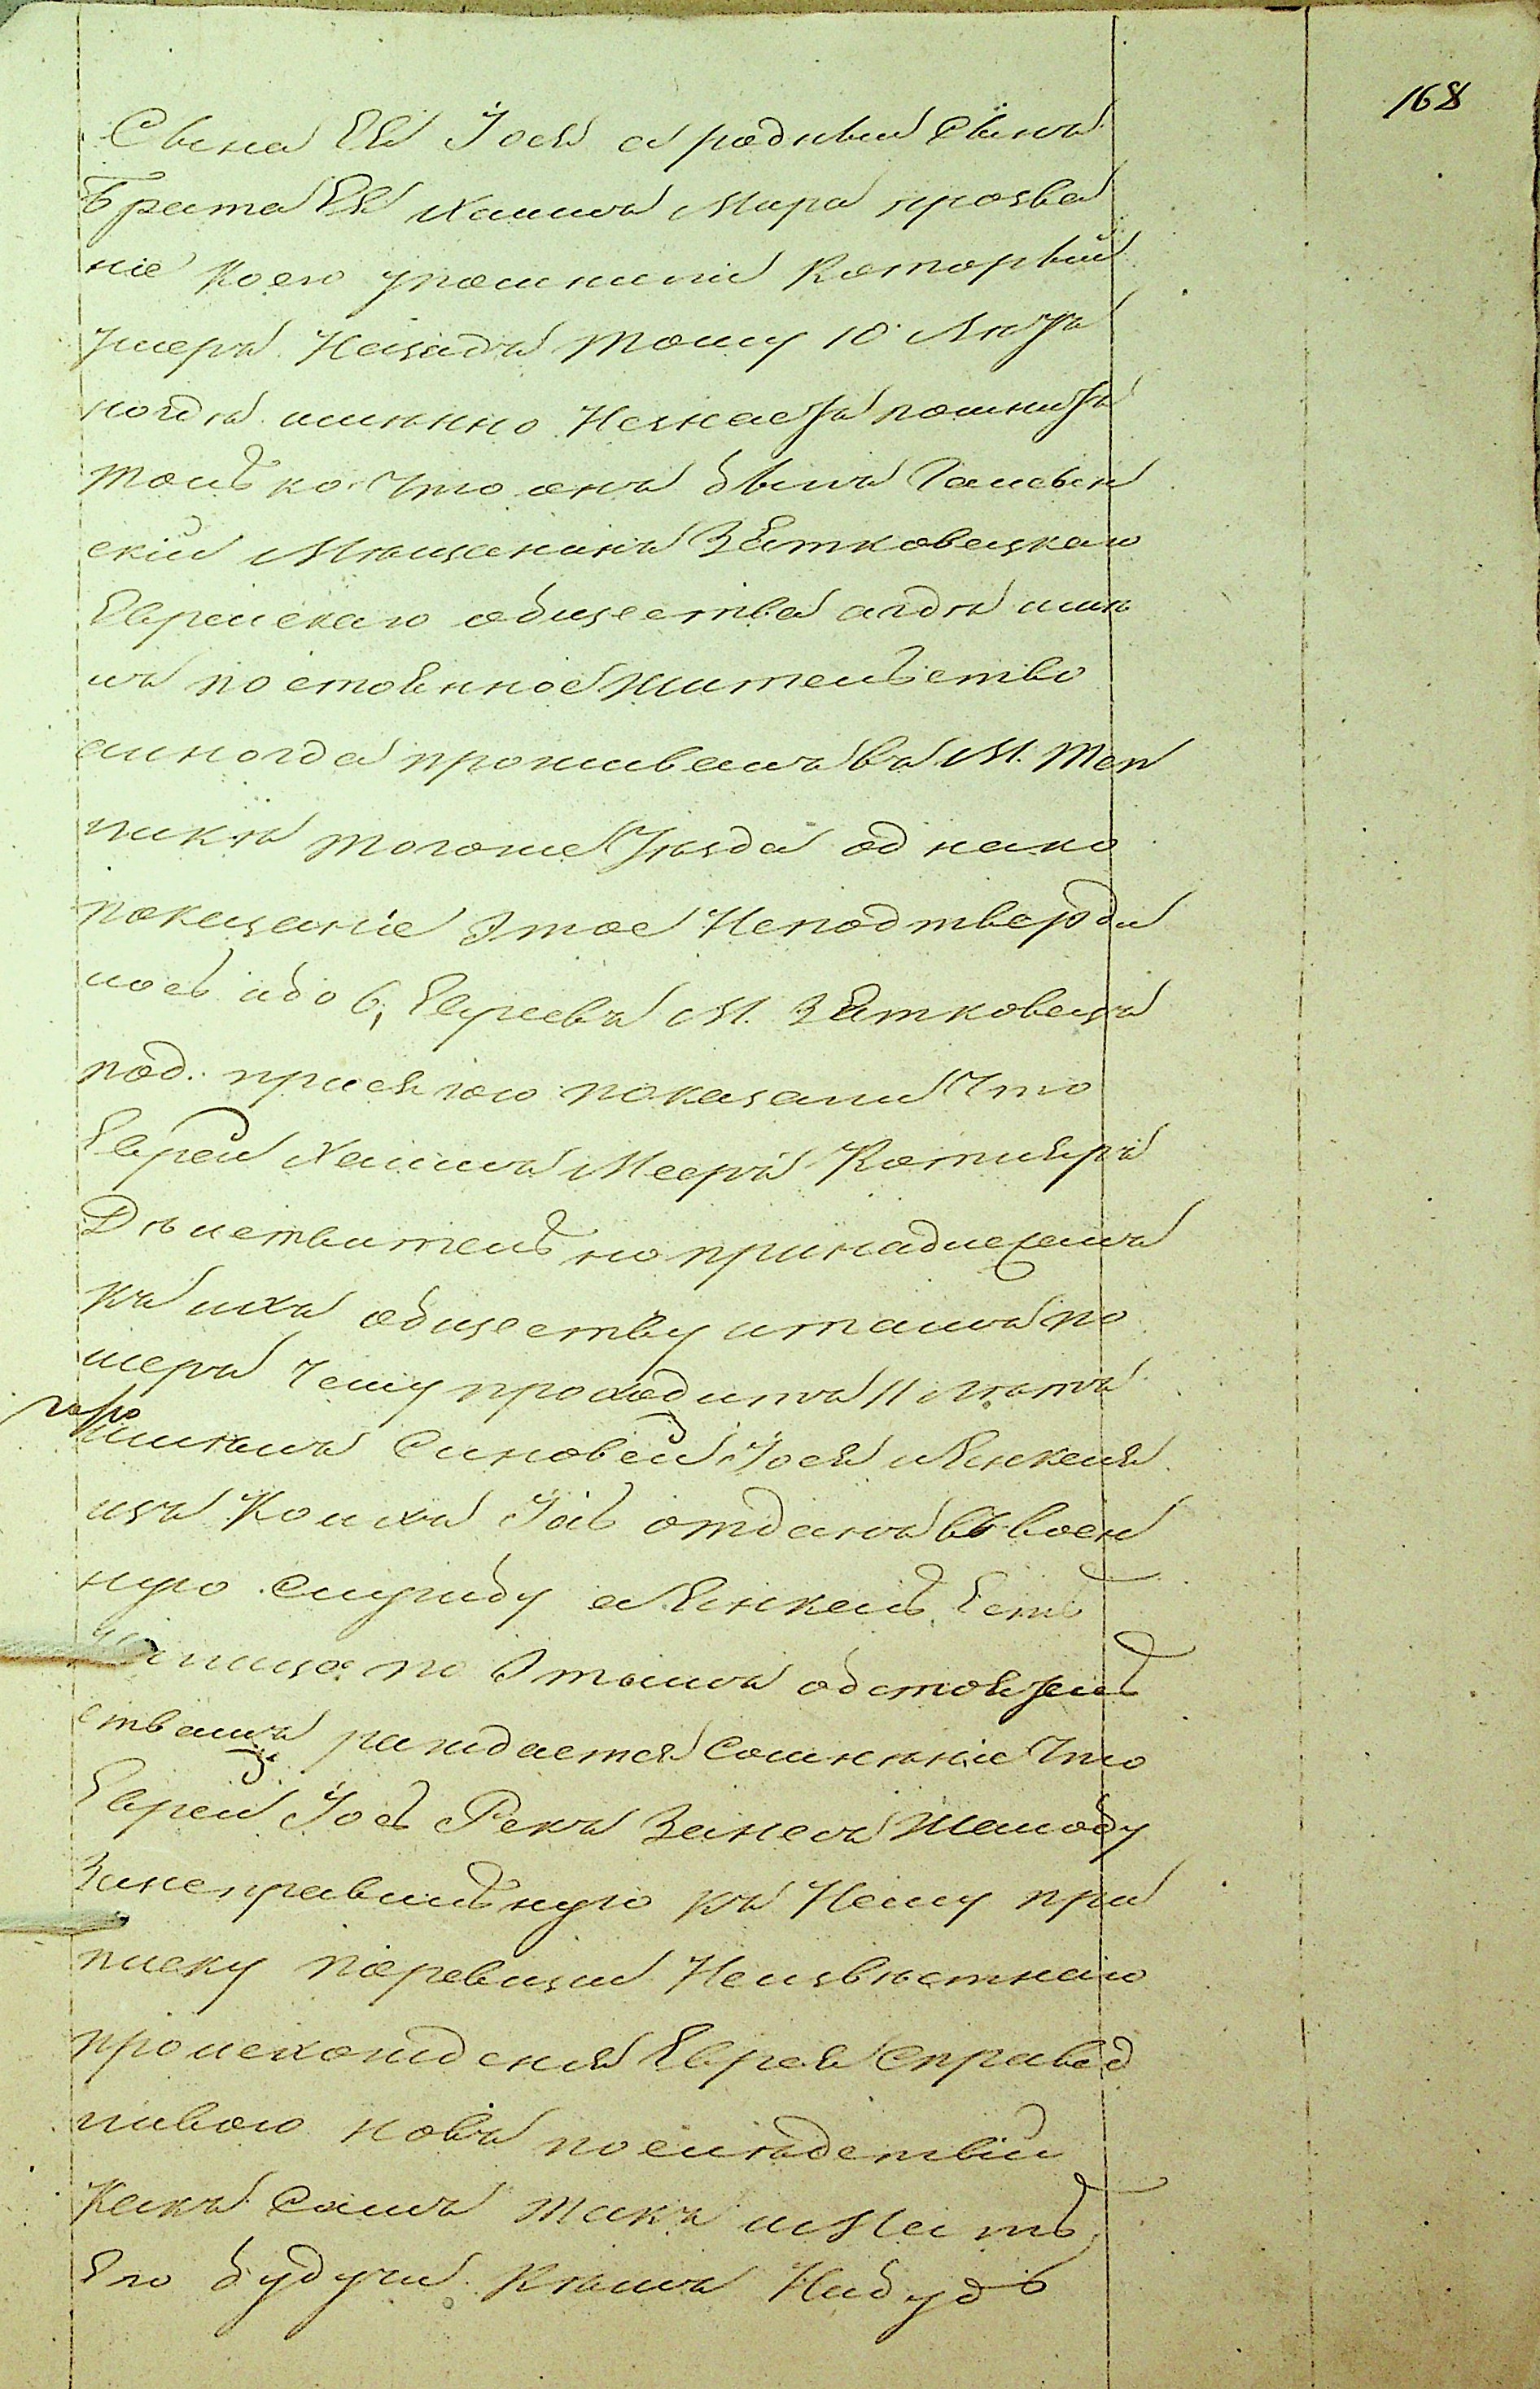 168
Сына Ея Іося а родный Сынъ
брата Ея Хаима Мира прозва
ніе коего упомнилъ который
умеръ Назадъ тому 10 Лѣтъ
когда именно Незнаетъ помнитъ
только Что онъ былъ Гайсын
скій Мѣщанинъ Зятковецкаго
Еврейскаго общества а гдѣ имѣ
лъ постоянное жительство
а иногда проживалъ въ М. Теп
ликѣ тогоже Уѣзда однако
показаніе Этое Неподтверди
лось ибо 6, Евреевъ М. Зятковецъ
под. присягою показали Что
Еврей Хаимъ Мееръ Котляръ
Дѣйствительно принадлежалъ
къ ихъ обществу и тамъ по
меръ Чему проходитъ 11 лѣтъ
имѣлъ Сыновей Іося и Янкеля
изъ Коихъ Іось отданъ въ воен
ную Службу а Янкель Есть
по Этимъ обстоятель
ствамъ раждается Сомнѣніе Что
Еврей Іось Рекъ Занесъ Жалобу
Занеправильную къ Нему при
писку поревизіи Неизвѣстнаго
происхожденія Еврея Справед
ливою новъ послѣдствіи
Какъ Самъ такъ и Мать
Его будучи Кѣмъ Нибудь